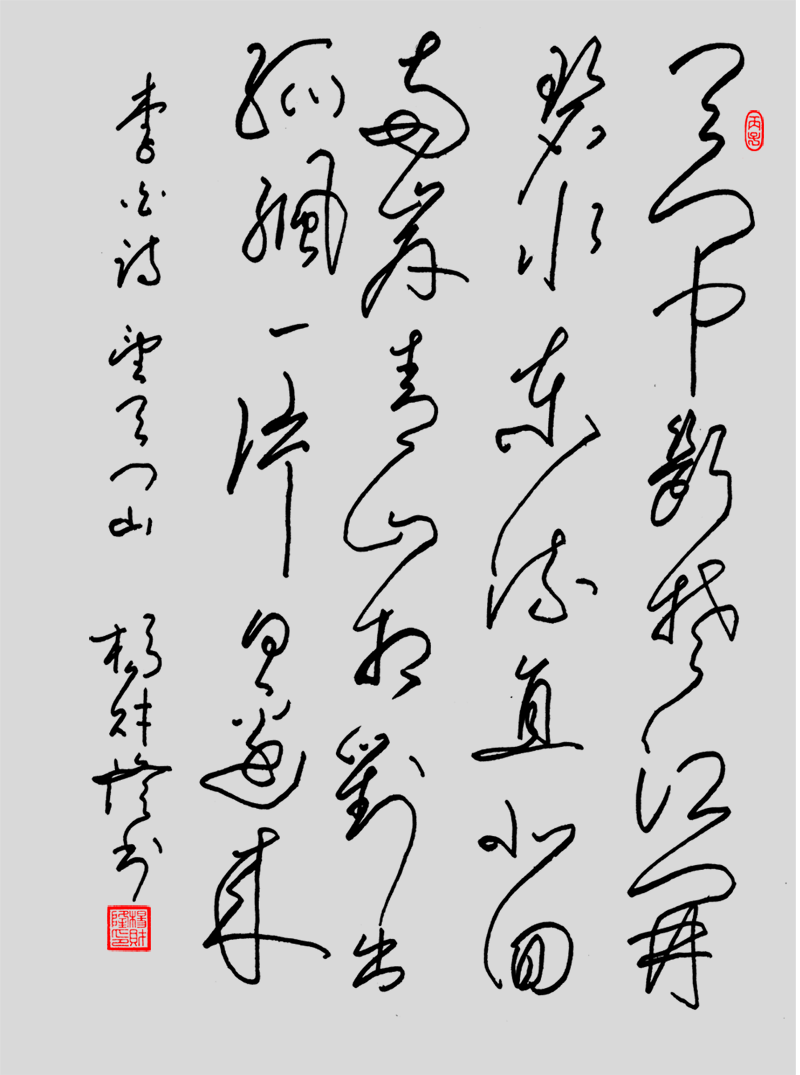 天門中斷楚江開
碧水東流直北回
兩岸青山相對出
孤颿一片日邊來
李白詩 望天門山 楊財隆書
楊財隆印